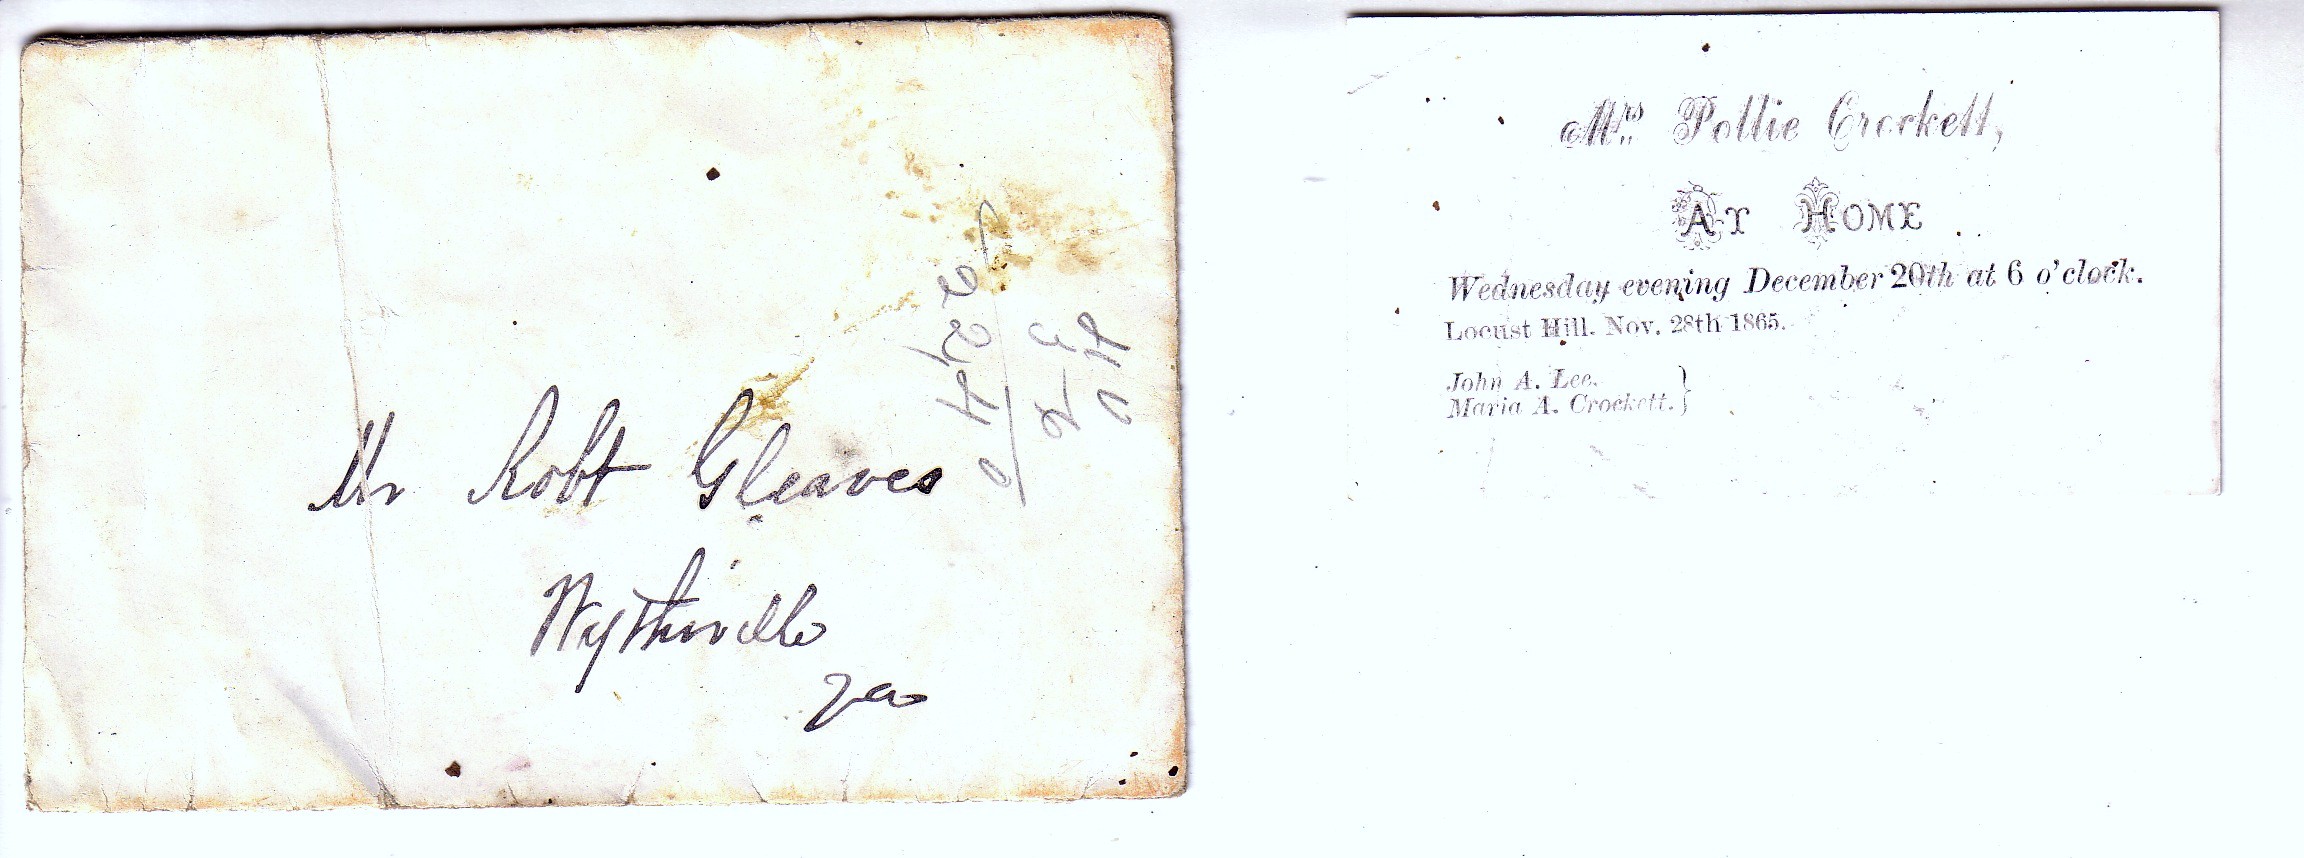 Mr Robt Gleaves
Wytheville
Va
Mrs Pollie Crockett,
AT HOME
Wednesday evening December 20th at 6 o'clock.
Locust Hill. Nov. 28th 1865.
John A. Lee.
Maria A. Crockett.}